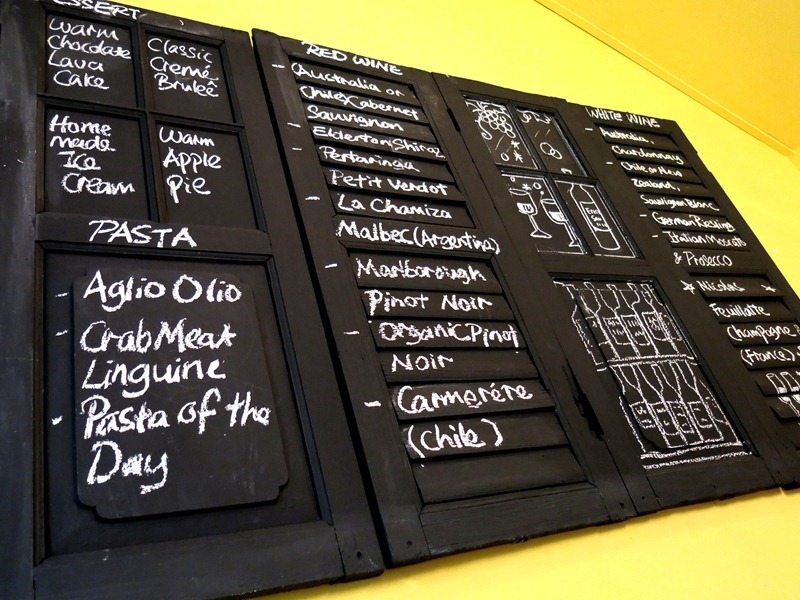 DESSERT
Warm
Chocolate
Lava
Cake
Classic
Cremé
Bruleê
Home
made
Ice
Cream
Warm
Apple
Pie
PASTA
- Aglio Olio
- Crab Meat
Linguine
- Pasta of the
Day
RED WINE
- (Australia or
Chile) Cabernet
Sauvignon
- Elderton (Shiraz
- Pertaringa
Petit Verdot
- La Chamiza
Malbec (Argentina)
- Marlborough
Pinot Noir
- Organic Pinot
Noir
- Carmerére
(Chile)
WHITE WINE
- Australia,
Chardonnay
- Chile or New
Zealand,
Sauvignon Blanc
- German Riesling
- Italian Moscato
& Prosecco
Nicolas
Feuillatte
Champagne
(France)